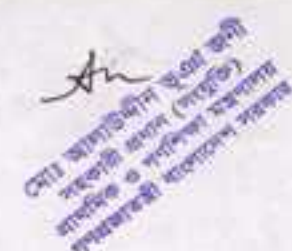 মোঃ আলাউদ্দীন ভূঞা জনী
সহকারী প্রধান (সংযুক্ত)
প্রাথমিক ও গণশিক্ষা মন্ত্রণালয়
গণপ্রজাতন্ত্রী বাংলাদেশ সরকার